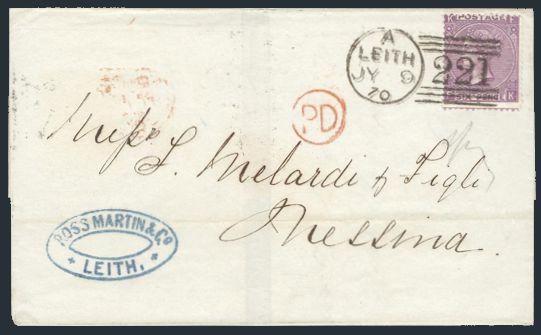 POSTAGE
A
LEITH
JY 9
70
221
SIX PENCE
K
PD
Mess. L. Melardi & Figli
Messina.
ROSS MARTIN & Co
LEITH.